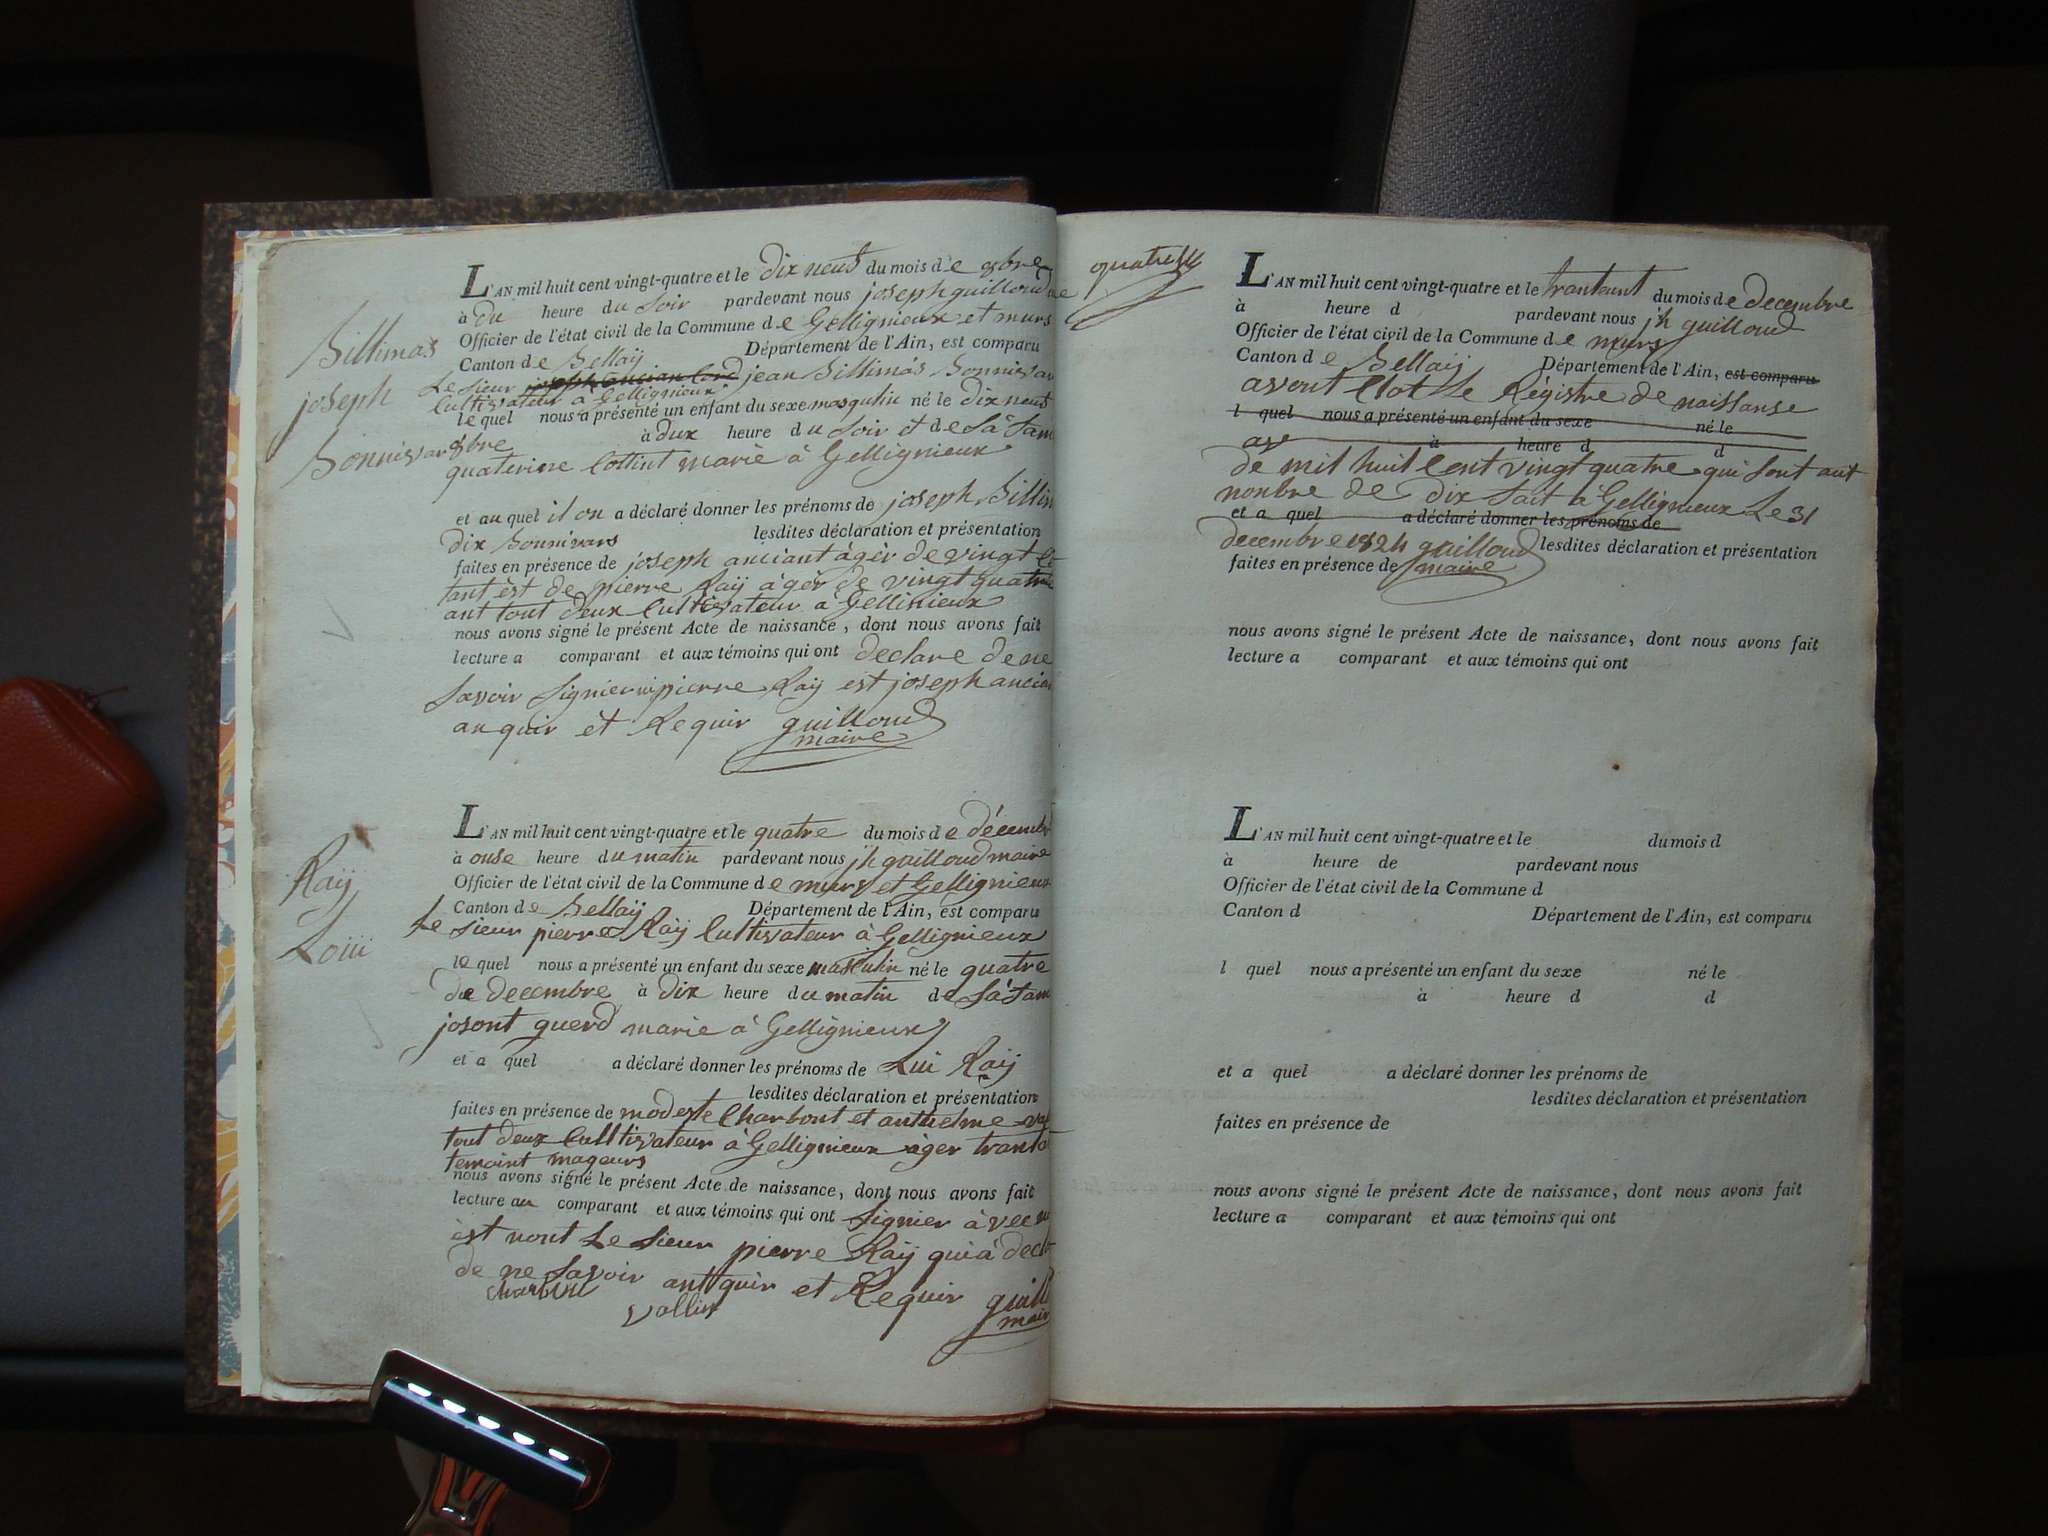 Billimas
joseph
Bonnivar
L'AN mil huit cent vingt-quatre et le dix neuf du mois de 8bre
à du heure du Soir pardevant nous joseph guilloud
Officier de l'état civil de la Commune de Gellignieux et murs
Canton de Bellaÿ Département de l'Ain, est comparu
Le Sieur jean Billimas Bonnivar
Cultivateur a Gellignieux
le quel nous a présenté un enfant du sexe masqulin né le dix neuf
8bre à dux heure du Soir et de Sâ fam
quaterine Collint marie à Gellignieux
et au quel il on a déclaré donner les prénoms de joseph Billim
dix Bonnivars lesdites déclaration et présentation
faites en présence de joseph anciant àgèr de vingt
tant èst de pierre Raÿ àgèr de vingt quatre
ant tout deux Cultivateur à Gellinieux
nous avons signé le présent Acte de naissance, dont nous avons fait
lecture a comparant et aux témoins qui ont declare de ne
Savoir Signier ni pierre Raÿ est joseph ancian
an quir et Requir guilloud
maire
Raÿ
Loui
L'AN mil huit cent vingt-quatre et le quatre du mois de décembr
à onse heure du matin pardevant nous jh guilloud maire
Officier de l'état civil de la Commune de murs et Gellignieux
Canton de Bellaÿ Département de l'Ain, est comparu
Le Sieur pierre Raÿ Cultivateur à Gellignieux
le quel nous a présenté un enfant du sexe masculin né le quatre
de decembre à dix heure du matin de Sâ fam
josont guerd marie à Gellignieux
et a quel a déclaré donner les prénoms de Lui Raÿ
lesdites déclaration et présentation
faites en présence de modeste Charbont et anthelme
tout deux Cultivateur à Gellignieux àger trant
temoint mageurs
nous avons signé le présent Acte de naissance, dont nous avons fait
lecture au comparant et aux témoins qui ont Signier àvec
èst nont Le Sieur pierre Raÿ qui à decla
de ne Savoir ant quir et Requir guill
vallin mair
quatre
L'AN mil huit cent vingt-quatre et le trantunt du mois de decembre
à heure d pardevant nous jh guilloud
Officier de l'état civil de la Commune de murs
Canton de Bellaÿ Département de l'Ain, est comparu
avont Clot Le Régistre de naissanse
l quel nous a présenté un enfant du sexe né le
à heure d d
de mil huit Cent vingt quatre qui Sont aut
nonbre de dix fait à Gellignieux Le 31
et a quel a déclaré donner les prénoms de
decembre 1824 guilloud lesdites déclaration et présentation
faites en présence de maire
nous avons signé le présent Acte de naissance, dont nous avons fait
lecture a comparant et aux témoins qui ont
L'AN mil huit cent vingt-quatre et le du mois d
à heure de pardevant nous
Officier de l'état civil de la Commune d
Canton d Département de l'Ain, est comparu
l quel nous a présenté un enfant du sexe né le
à heure d d
et a quel a déclaré donner les prénoms de
lesdites déclaration et présentation
faites en présence de
nous avons signé le présent Acte de naissance, dont nous avons fait
lecture a comparant et aux témoins qui ont